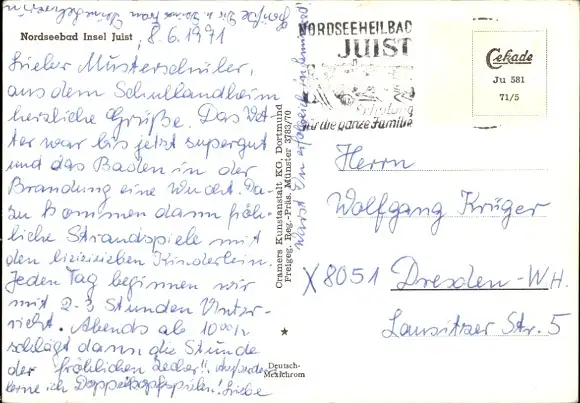 Nordseebad Insel Juist
, 8.6.1971
Lieber Musterschüler,
aus dem Schullandheim
herzliche Grüße. Das Wet-
ter war bis jetzt supergut
und das Baden in der
Brandung eine Wucht. Da-
zu kommen dann fröh-
liche Strandspiele mit
den Kinderlein.
Jeden Tag beginnen wir
mit 2-3 Stunden Unter-
richt. Abends ab 10 00 h
schlägt dann die Stunde
der fröhlichen Zecher!! Außerdem
lerne ich Doppelkopfspielen! Liebe
Grüße Dir u. Deiner Frau
Warst Du erfolgreich im
Cramers Kunstanstalt KG, Dortmund
Freigeg. Reg.-Präs. Münster 3783/70
Deutsch-
Mexichrom
NORDSEEHEILBAD
JUIST
Erholung
für die ganze Familie
Cekade
Ju 581
71/5
Herrn
Wolfgang Krüger
X 8051 Dresden-WH.
Lausitzer Str. 5